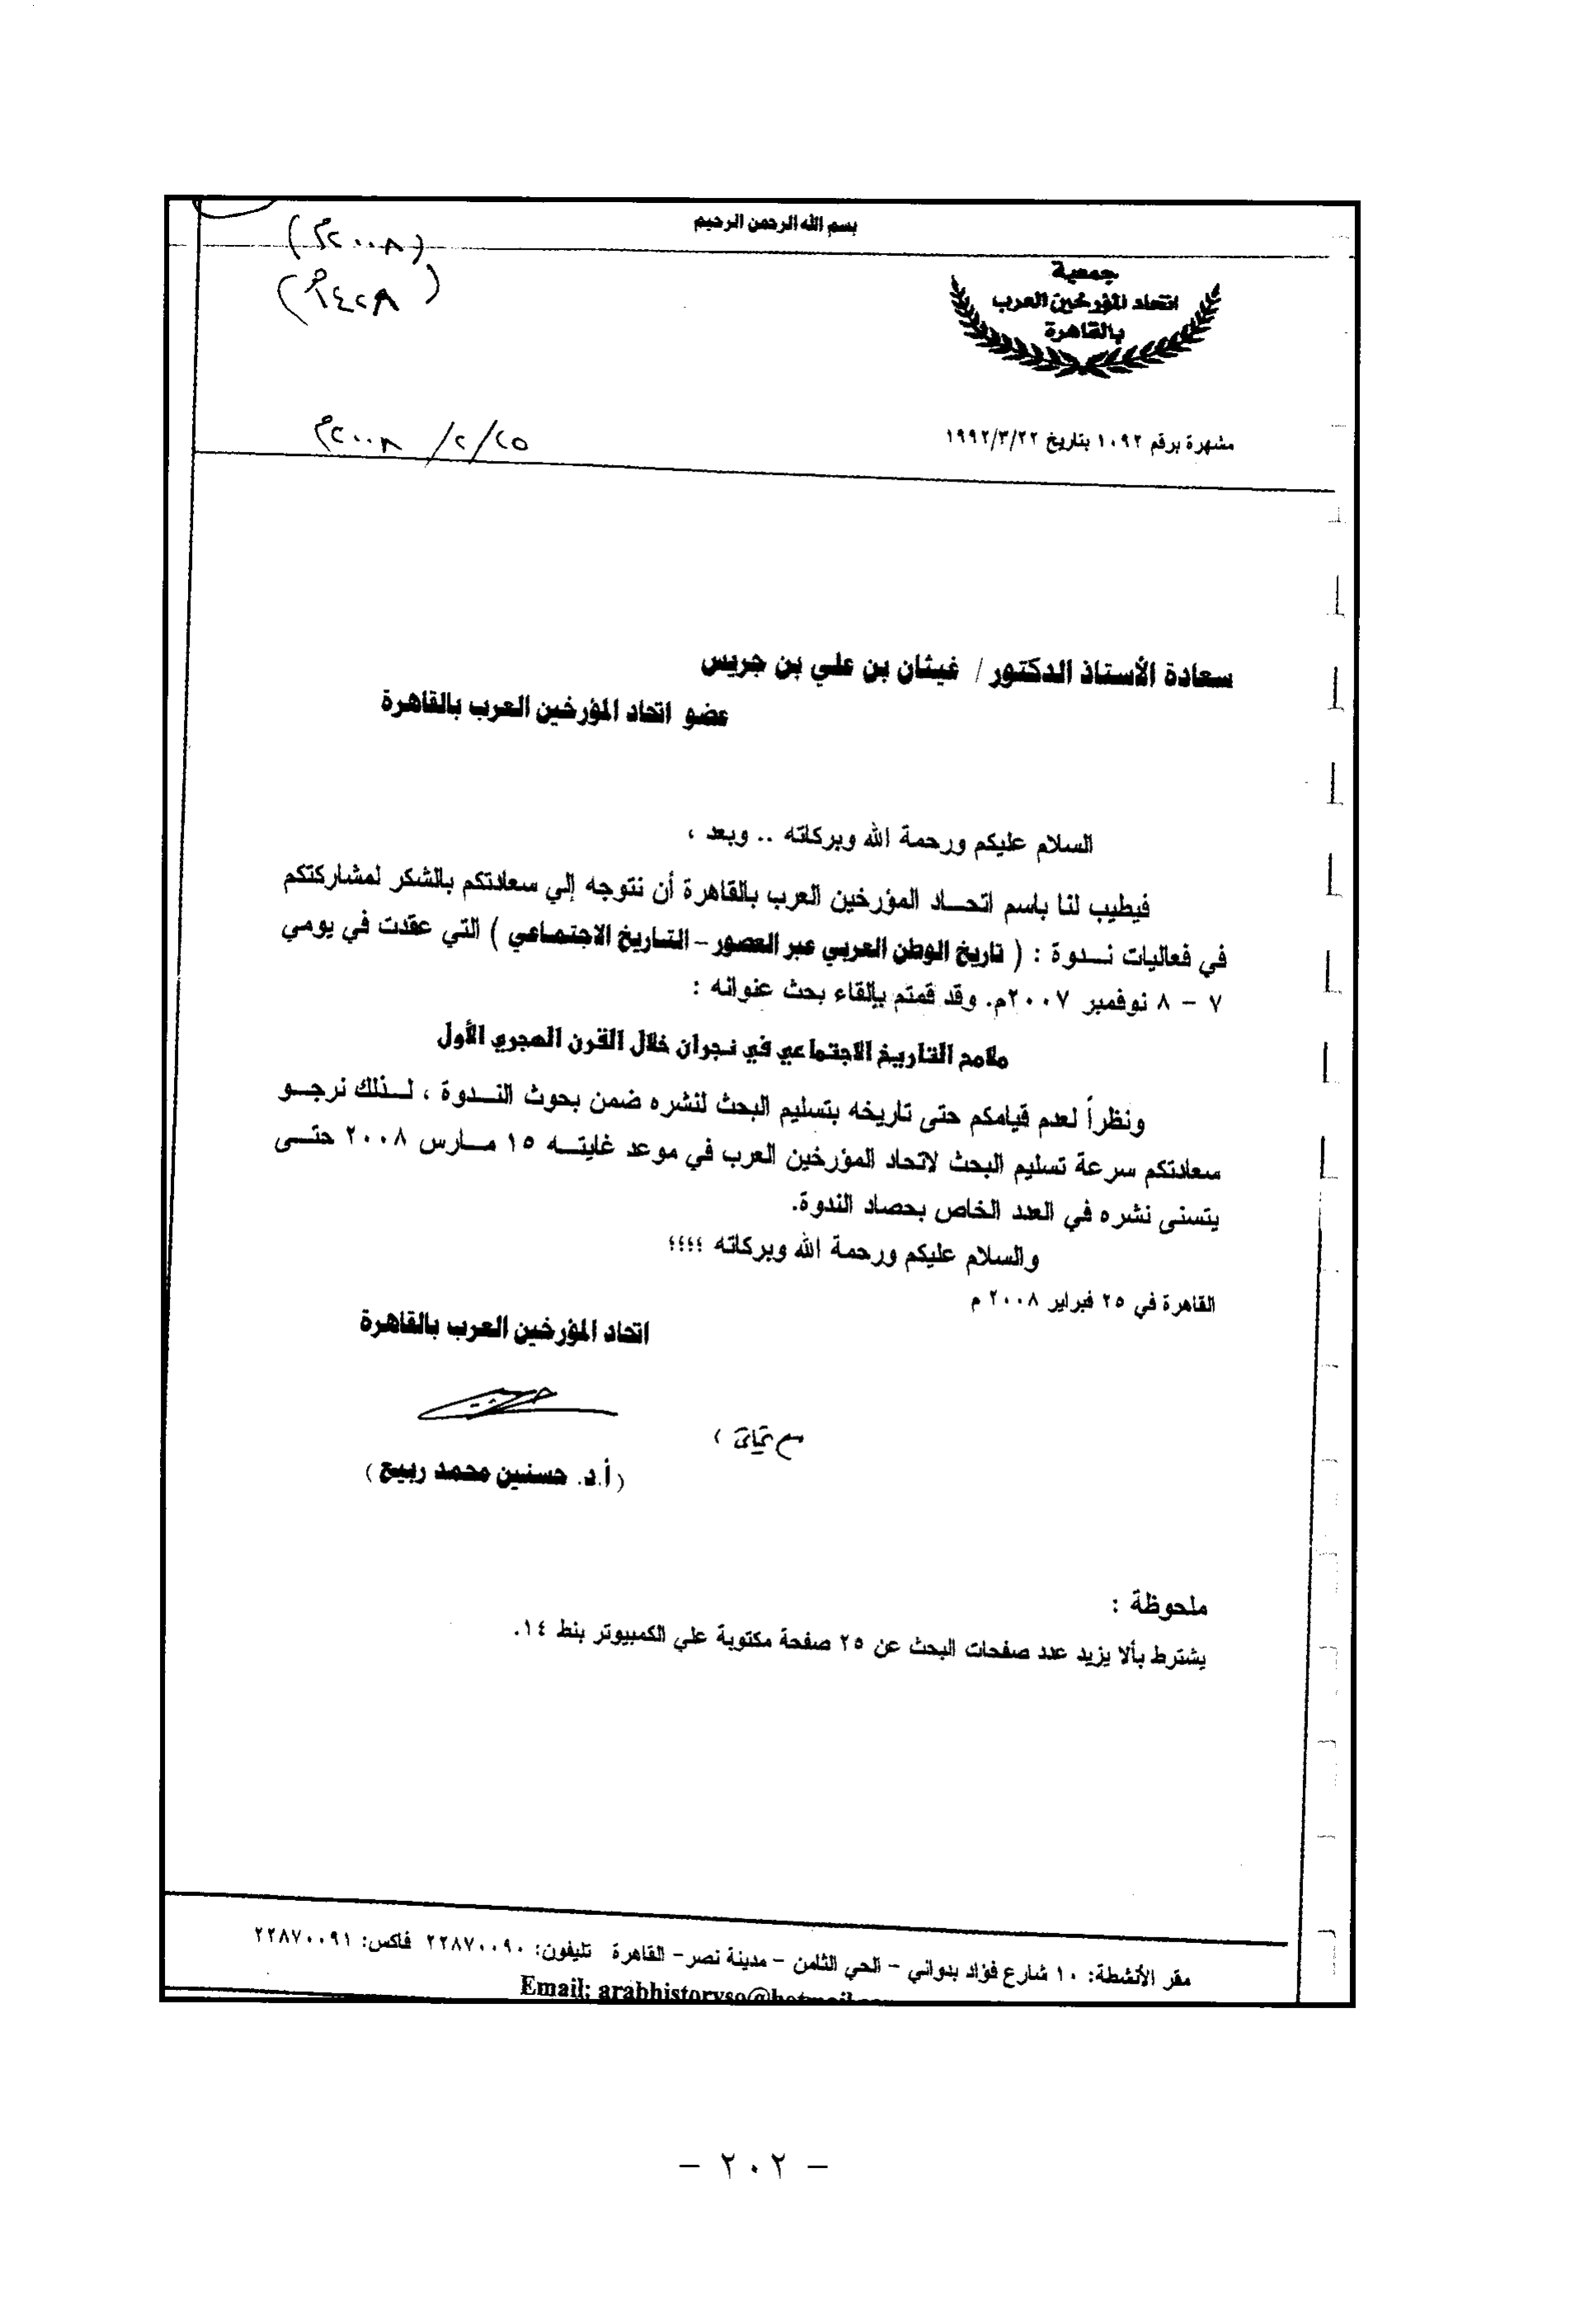 بسم الله الرحمن الرحيم
(٢٠٠٨م)
جمعية
اتحاد المؤرخين العرب
بالقاهرة
مشهرة برقم ١٠٩٢ بتاريخ ١٩٩٢/٣/٢٢
٢٥/٢/٢٠٠٨م
سعادة الأستاذ الدكتور / غيثان بن علي بن جريس
عضو اتحاد المؤرخين العرب بالقاهرة
السلام عليكم ورحمة الله وبركاته .. وبعد ،
فيطيب لنا باسم اتحاد المؤرخين العرب بالقاهرة أن نتوجه إلي سعادتكم بالشكر لمشاركتكم
في فعاليات ندوة : ( تاريخ الوطن العربي عبر العصور – التاريخ الاجتماعي ) التي عقدت في يومي
٧ – ٨ نوفمبر ٢٠٠٧م. وقد قمتم بإلقاء بحث عنوانه :
ملامح التاريخ الاجتماعي في نجران خلال القرن الهجري الأول
ونظراً لعدم قيامكم حتى تاريخه بتسليم البحث لنشره ضمن بحوث الندوة ، لذلك نرجو
سعادتكم سرعة تسليم البحث لاتحاد المؤرخين العرب في موعد غايته ١٥ مارس ٢٠٠٨ حتى
يتسنى نشره في العدد الخاص بحصاد الندوة.
والسلام عليكم ورحمة الله وبركاته ؛؛؛؛
القاهرة في ٢٥ فبراير ٢٠٠٨ م
اتحاد المؤرخين العرب بالقاهرة
مع تحياتي ،
( أ.د. حسنين محمد ربيع )
ملحوظة :
يشترط بألا يزيد عدد صفحات البحث عن ٢٥ صفحة مكتوبة علي الكمبيوتر بنط ١٤.
مقر الأنشطة: ١٠ شارع فؤاد بدواني – الحي الثامن – مدينة نصر– القاهرة تليفون: ٢٢٨٧٠٠٩٠ فاكس: ٢٢٨٧٠٠٩١
Email: arabhistoryso@hotmail
– ٢٠٢ –